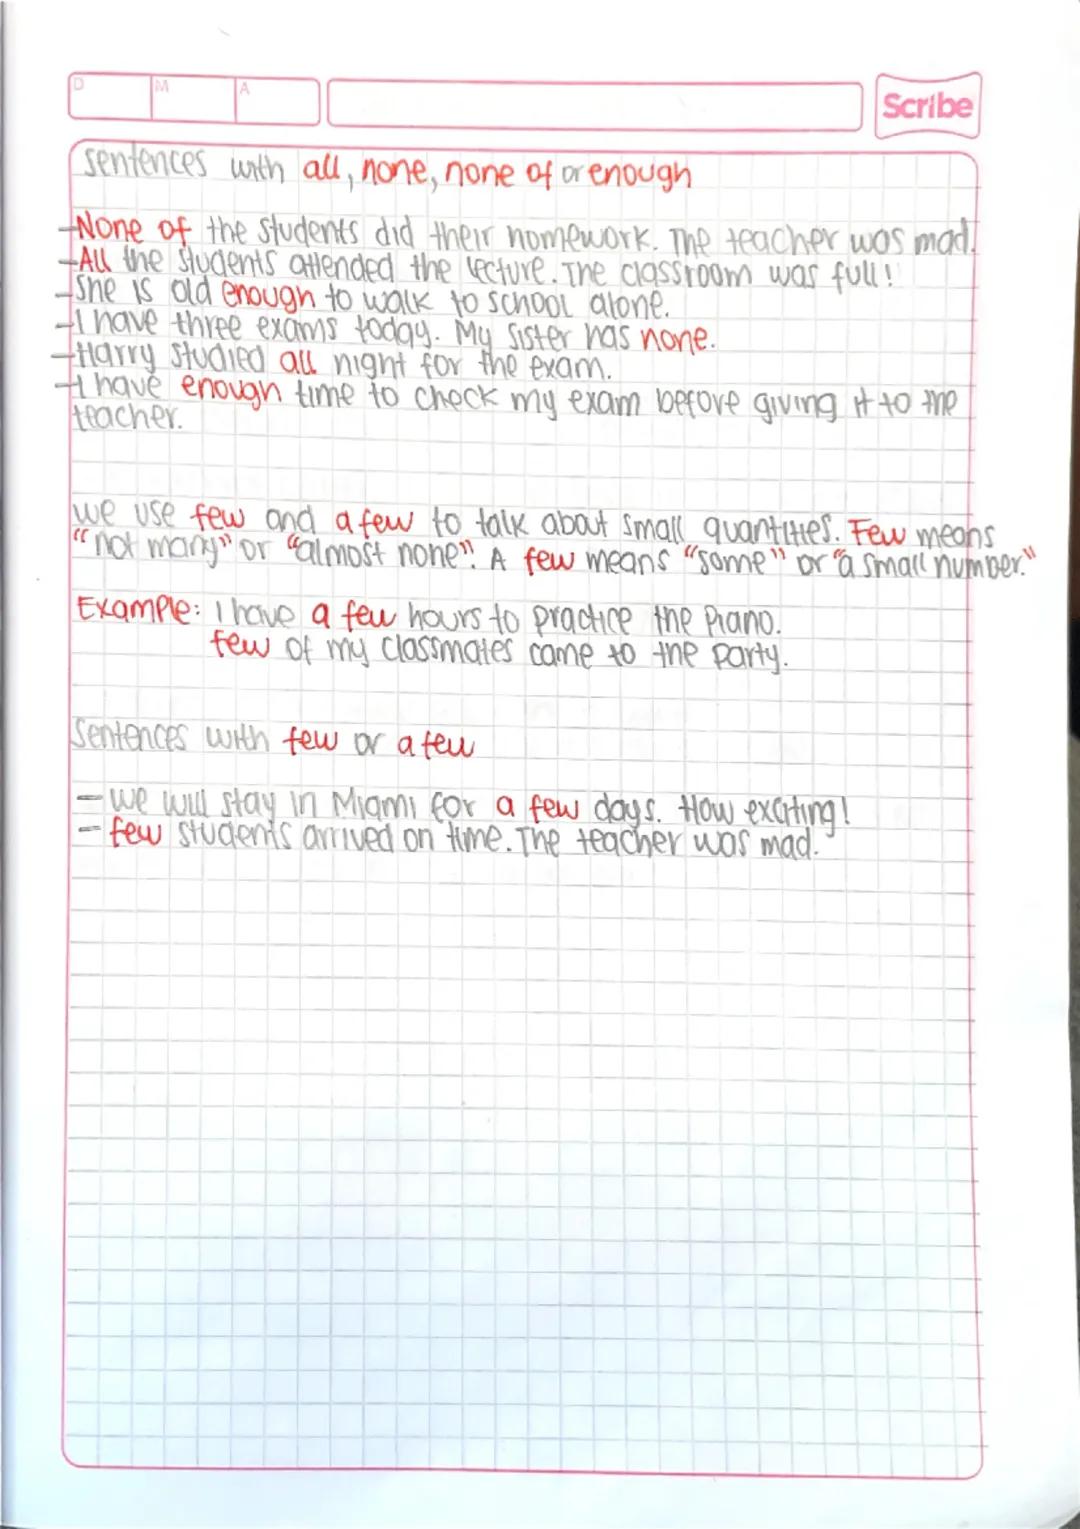 D M A
Scribe
sentences with all, none, none of or enough
-None of the students did their homework. The teacher was mad.
-All the students attended the lecture. The classroom was full!
-She is old enough to walk to school alone.
-I have three exams today. My sister has none.
-Harry studied all night for the exam.
-I have enough time to check my exam before giving it to the
teacher.
we use few and a few to talk about small quantities. Few means
"not many" or "almost none". A few means "some" or "a small number."
Example: I have a few hours to practice the piano.
few of my classmates came to the party.
Sentences with few or a few
- we will stay in Miami for a few days. How exciting!
- few students arrived on time. The teacher was mad.